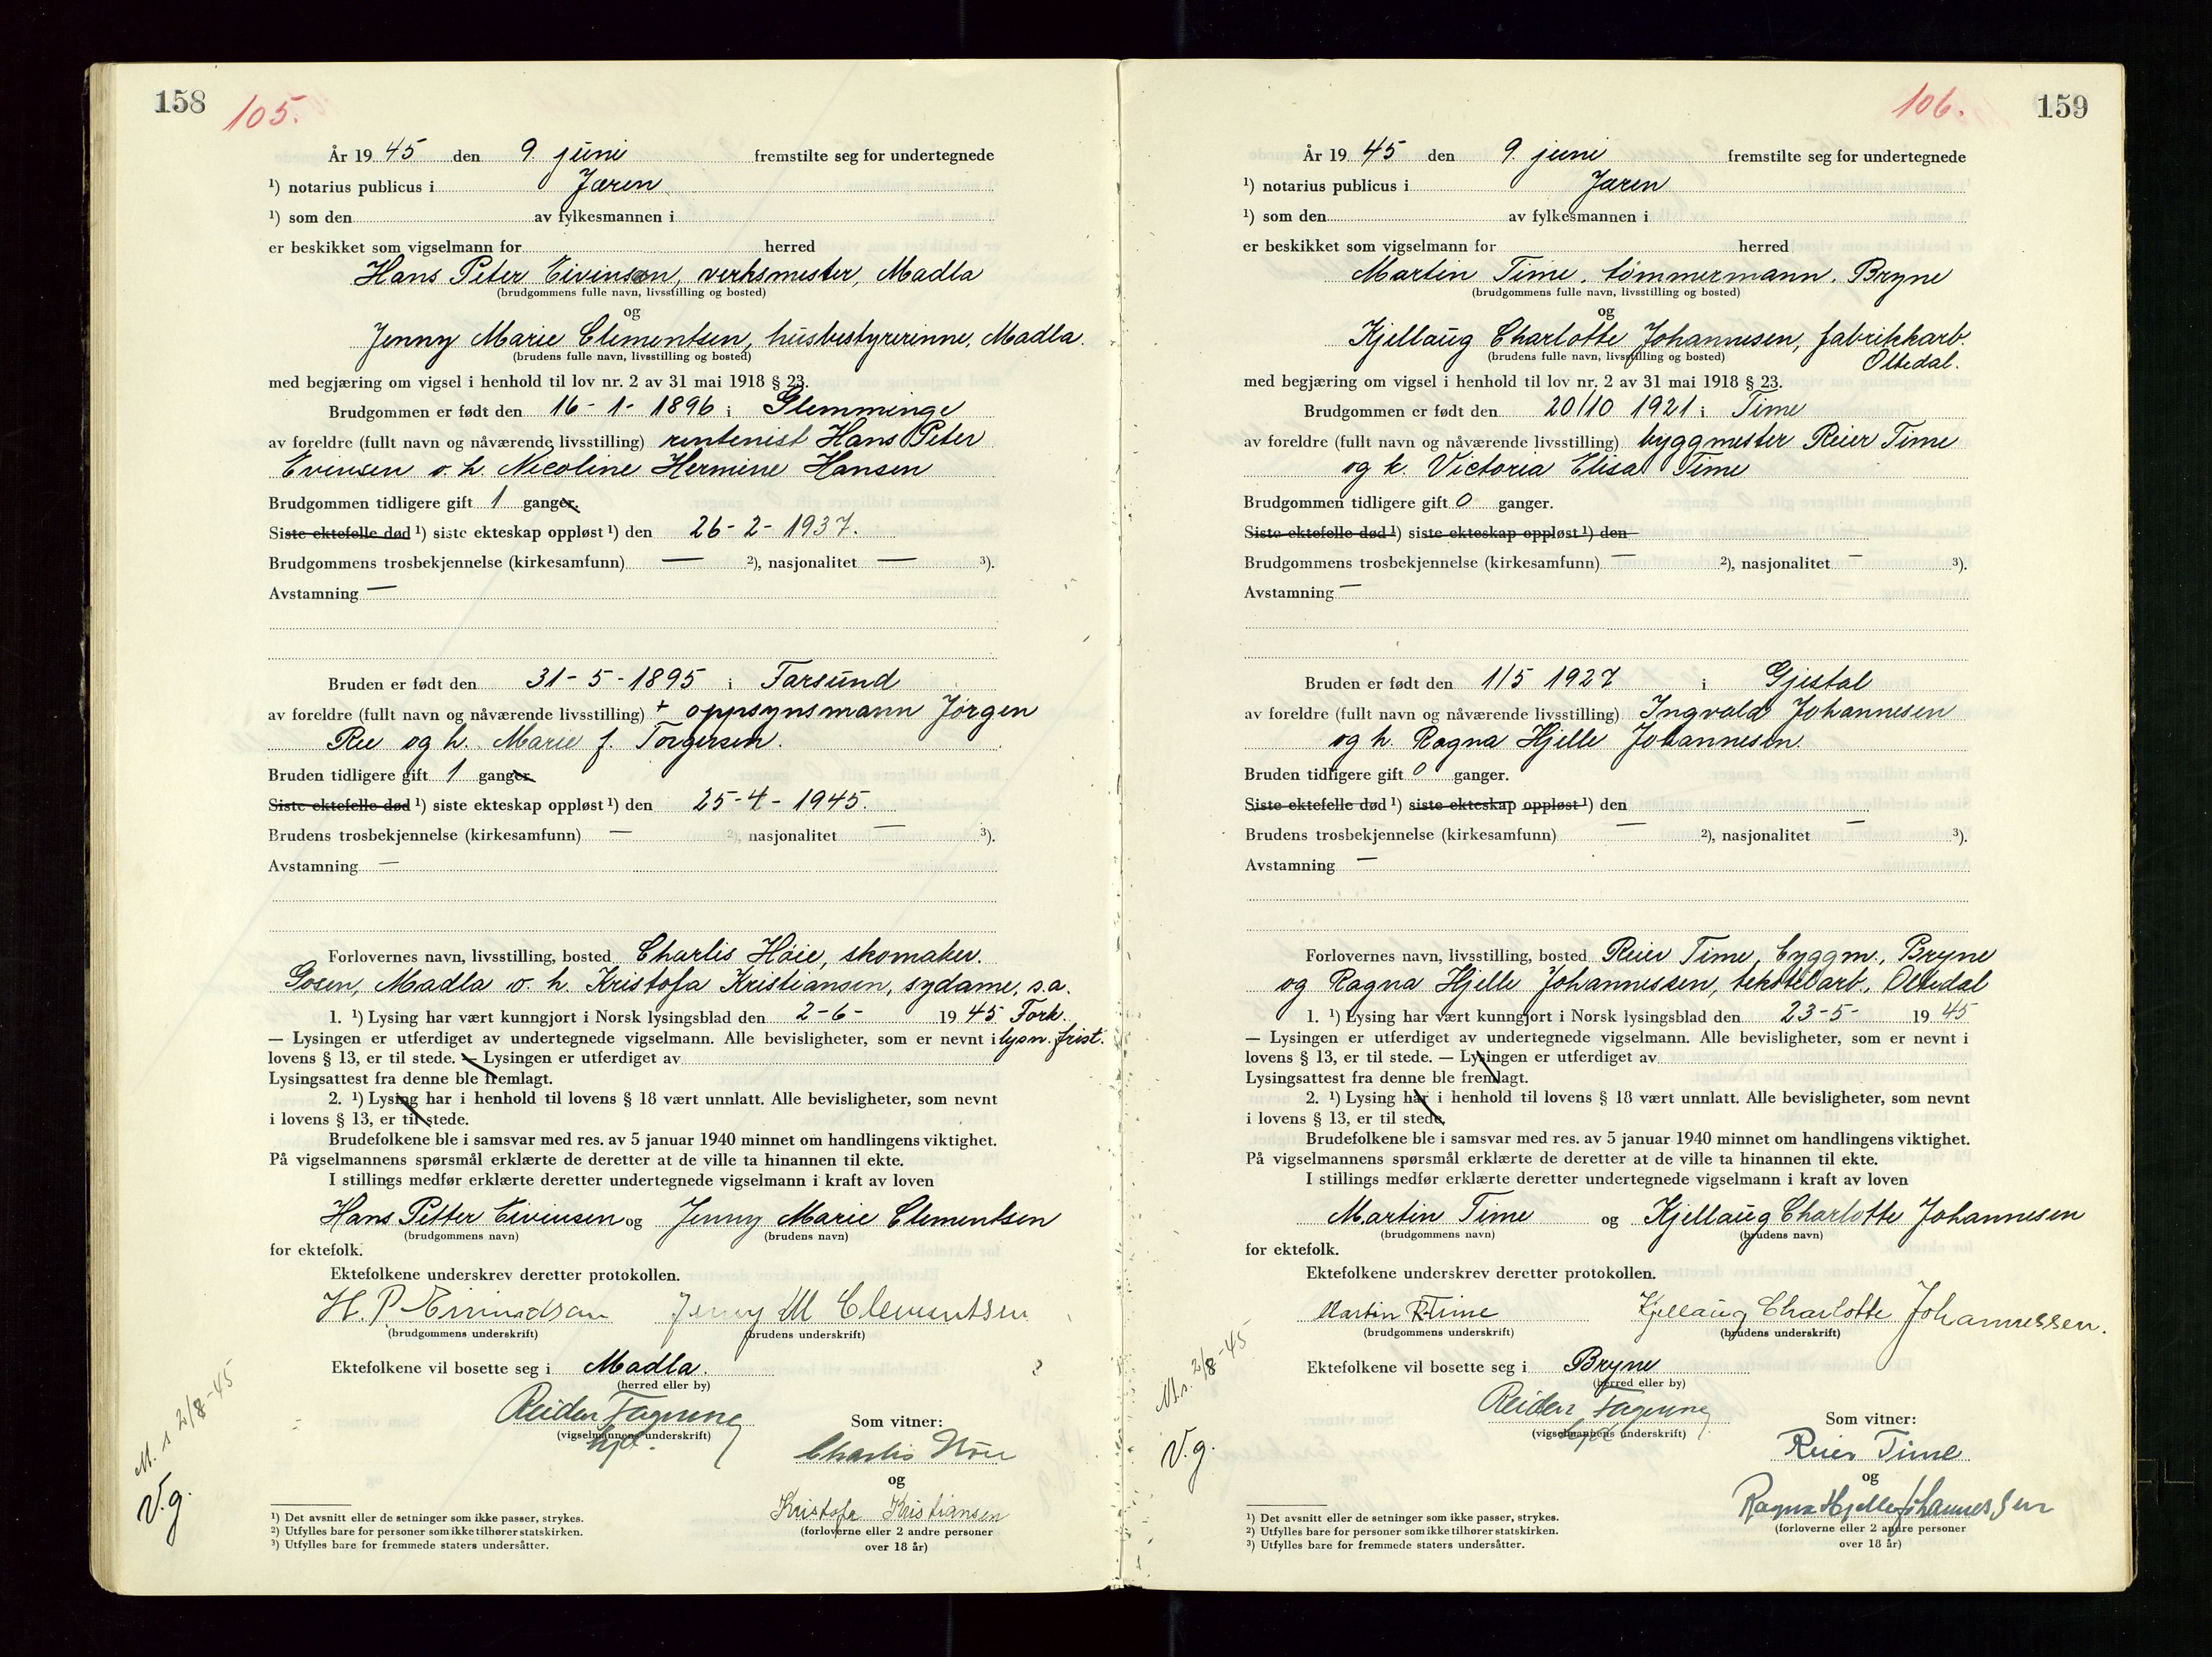 158
105.
År 1945 den 9. juni fremstilte seg for undertegnede
¹) notarius publicus i Jæren
¹) som den av fylkesmannen i
er beskikket som vigselmann for herred
Hans Peter Eivinsen, verksmester, Madla
(brudgommens fulle navn, livsstilling og bosted)
og
Jenny Marie Clementsen, husbestyrerinne, Madla.
(brudens fulle navn, livsstilling og bosted)
med begjæring om vigsel i henhold til lov nr. 2 av 31 mai 1918 § 23.
Brudgommen er født den 16-1-1896 i Glemminge
av foreldre (fullt navn og nåværende livsstilling) rentenist Hans Peter
Evinsen o. h. Nicoline Hermine Hansen
Brudgommen tidligere gift 1 ganger.
Siste ektefelle død ¹) siste ekteskap oppløst ¹) den 26-2-1937.
Brudgommens trosbekjennelse (kirkesamfunn) — ²), nasjonalitet — ³).
Avstamning —
Bruden er født den 31-5-1895 i Farsund
av foreldre (fullt navn og nåværende livsstilling) + oppsynsmann Jørgen
Ree og h. Marie f. Torgersen.
Bruden tidligere gift 1 ganger.
Siste ektefelle død ¹) siste ekteskap oppløst ¹) den 25-4-1945.
Brudens trosbekjennelse (kirkesamfunn) — ²), nasjonalitet — ³).
Avstamning —
Forlovernes navn, livsstilling, bosted Charlis Höie, skomaker.
Gosen, Madla o. h. Kristofa Kristiansen, sydame, s.a.
1. ¹) Lysing har vært kunngjort i Norsk lysingsblad den 2-6- 1945 Fork.
— Lysingen er utferdiget av undertegnede vigselmann. Alle bevisligheter, som er nevnt i lysn. frist.
lovens § 13, er til stede. — Lysingen er utferdiget av
Lysingsattest fra denne ble fremlagt.
2. ¹) Lysing har i henhold til lovens § 18 vært unnlatt. Alle bevisligheter, som nevnt
i lovens § 13, er til stede.
Brudefolkene ble i samsvar med res. av 5 januar 1940 minnet om handlingens viktighet.
På vigselmannens spørsmål erklærte de deretter at de ville ta hinannen til ekte.
I stillings medfør erklærte deretter undertegnede vigselmann i kraft av loven
Hans Petter Eivinsen og Jenny Marie Clementsen
(brudgommens navn) (brudens navn)
for ektefolk.
Ektefolkene underskrev deretter protokollen.
H. P. Eivindsan Jenny M Clementsen
(brudgommens underskrift) (brudens underskrift)
Ektefolkene vil bosette seg i Madla.
(herred eller by)
Reidar
(vigselmannens underskrift)
Som vitner:
Charlis Höie
og
Kristofa Kristiansen
(forloverne eller 2 andre personer
over 18 år)
M. s 2/8-45
V.g.
¹) Det avsnitt eller de setninger som ikke passer, strykes.
²) Utfylles bare for personer som ikke tilhører statskirken.
³) Utfylles bare for fremmede staters undersåtter.
106.
159
År 1945 den 9. juni fremstilte seg for undertegnede
¹) notarius publicus i Jæren
¹) som den av fylkesmannen i
er beskikket som vigselmann for herred
Martin Time, tømmermann, Bryne
(brudgommens fulle navn, livsstilling og bosted)
og
Kjellaug Charlotte Johannesen, fabrikkarb.
(brudens fulle navn, livsstilling og bosted)
Oltedal.
med begjæring om vigsel i henhold til lov nr. 2 av 31 mai 1918 § 23.
Brudgommen er født den 20/10 1921 i Time
av foreldre (fullt navn og nåværende livsstilling) byggmester Reier Time
og h. Victoria Elisa Time
Brudgommen tidligere gift 0 ganger.
Siste ektefelle død ¹) siste ekteskap oppløst ¹) den
Brudgommens trosbekjennelse (kirkesamfunn) — ²), nasjonalitet — ³).
Avstamning —
Bruden er født den 1/5 1927 i Gjestal
av foreldre (fullt navn og nåværende livsstilling) Ingvald Johannesen
og h. Ragna Hjelle Johannesen.
Bruden tidligere gift 0 ganger.
Siste ektefelle død ¹) siste ekteskap oppløst ¹) den
Brudens trosbekjennelse (kirkesamfunn) — ²), nasjonalitet — ³).
Avstamning —
Forlovernes navn, livsstilling, bosted Reier Time, byggm., Bryne
og Ragna Hjelle Johannessen, tekstilarb., Oltedal
1. ¹) Lysing har vært kunngjort i Norsk lysingsblad den 23-5- 1945
— Lysingen er utferdiget av undertegnede vigselmann. Alle bevisligheter, som er nevnt i
lovens § 13, er til stede. — Lysingen er utferdiget av
Lysingsattest fra denne ble fremlagt.
2. ¹) Lysing har i henhold til lovens § 18 vært unnlatt. Alle bevisligheter, som nevnt
i lovens § 13, er til stede.
Brudefolkene ble i samsvar med res. av 5 januar 1940 minnet om handlingens viktighet.
På vigselmannens spørsmål erklærte de deretter at de ville ta hinannen til ekte.
I stillings medfør erklærte deretter undertegnede vigselmann i kraft av loven
Martin Time og Kjellaug Charlotte Johannesen
(brudgommens navn) (brudens navn)
for ektefolk.
Ektefolkene underskrev deretter protokollen.
Martin R Time Kjellaug Charlotte Johannessen.
(brudgommens underskrift) (brudens underskrift)
Ektefolkene vil bosette seg i Bryne
(herred eller by)
Reidar
(vigselmannens underskrift)
Som vitner:
Reier Time
og
Ragna Hjelle Johannessen
(forloverne eller 2 andre personer
over 18 år)
M.s. 2/8-45
V.g.
¹) Det avsnitt eller de setninger som ikke passer, strykes.
²) Utfylles bare for personer som ikke tilhører statskirken.
³) Utfylles bare for fremmede staters undersåtter.